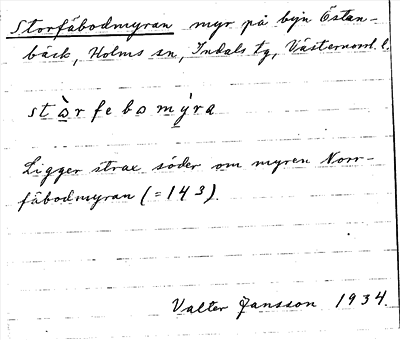 Storfäbodmyran myr på byn Östan-
bäck, Holms sn, Indals tg, Västernorrl. l.
stɷ̀rfebomy̗ra
Ligger strax söder om myren Norr-
fäbodmyran (=143).
Valter Jansson 1934.